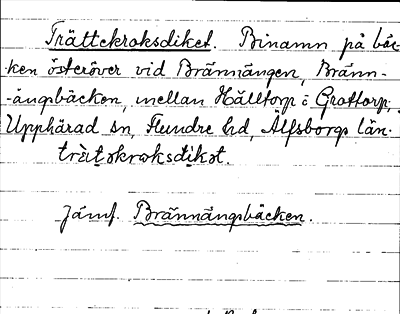 Trättekroksdiket. Binamn på bäc-
ken österöver vid Brännängen, Bränn-
-ängsbäcken, mellan Hälltorp o Grottorp,
Upphärad sn, Flundre hd, Älfsborgs län.
trätəkroksdikət.
Jämf. Brännängsbäcken.